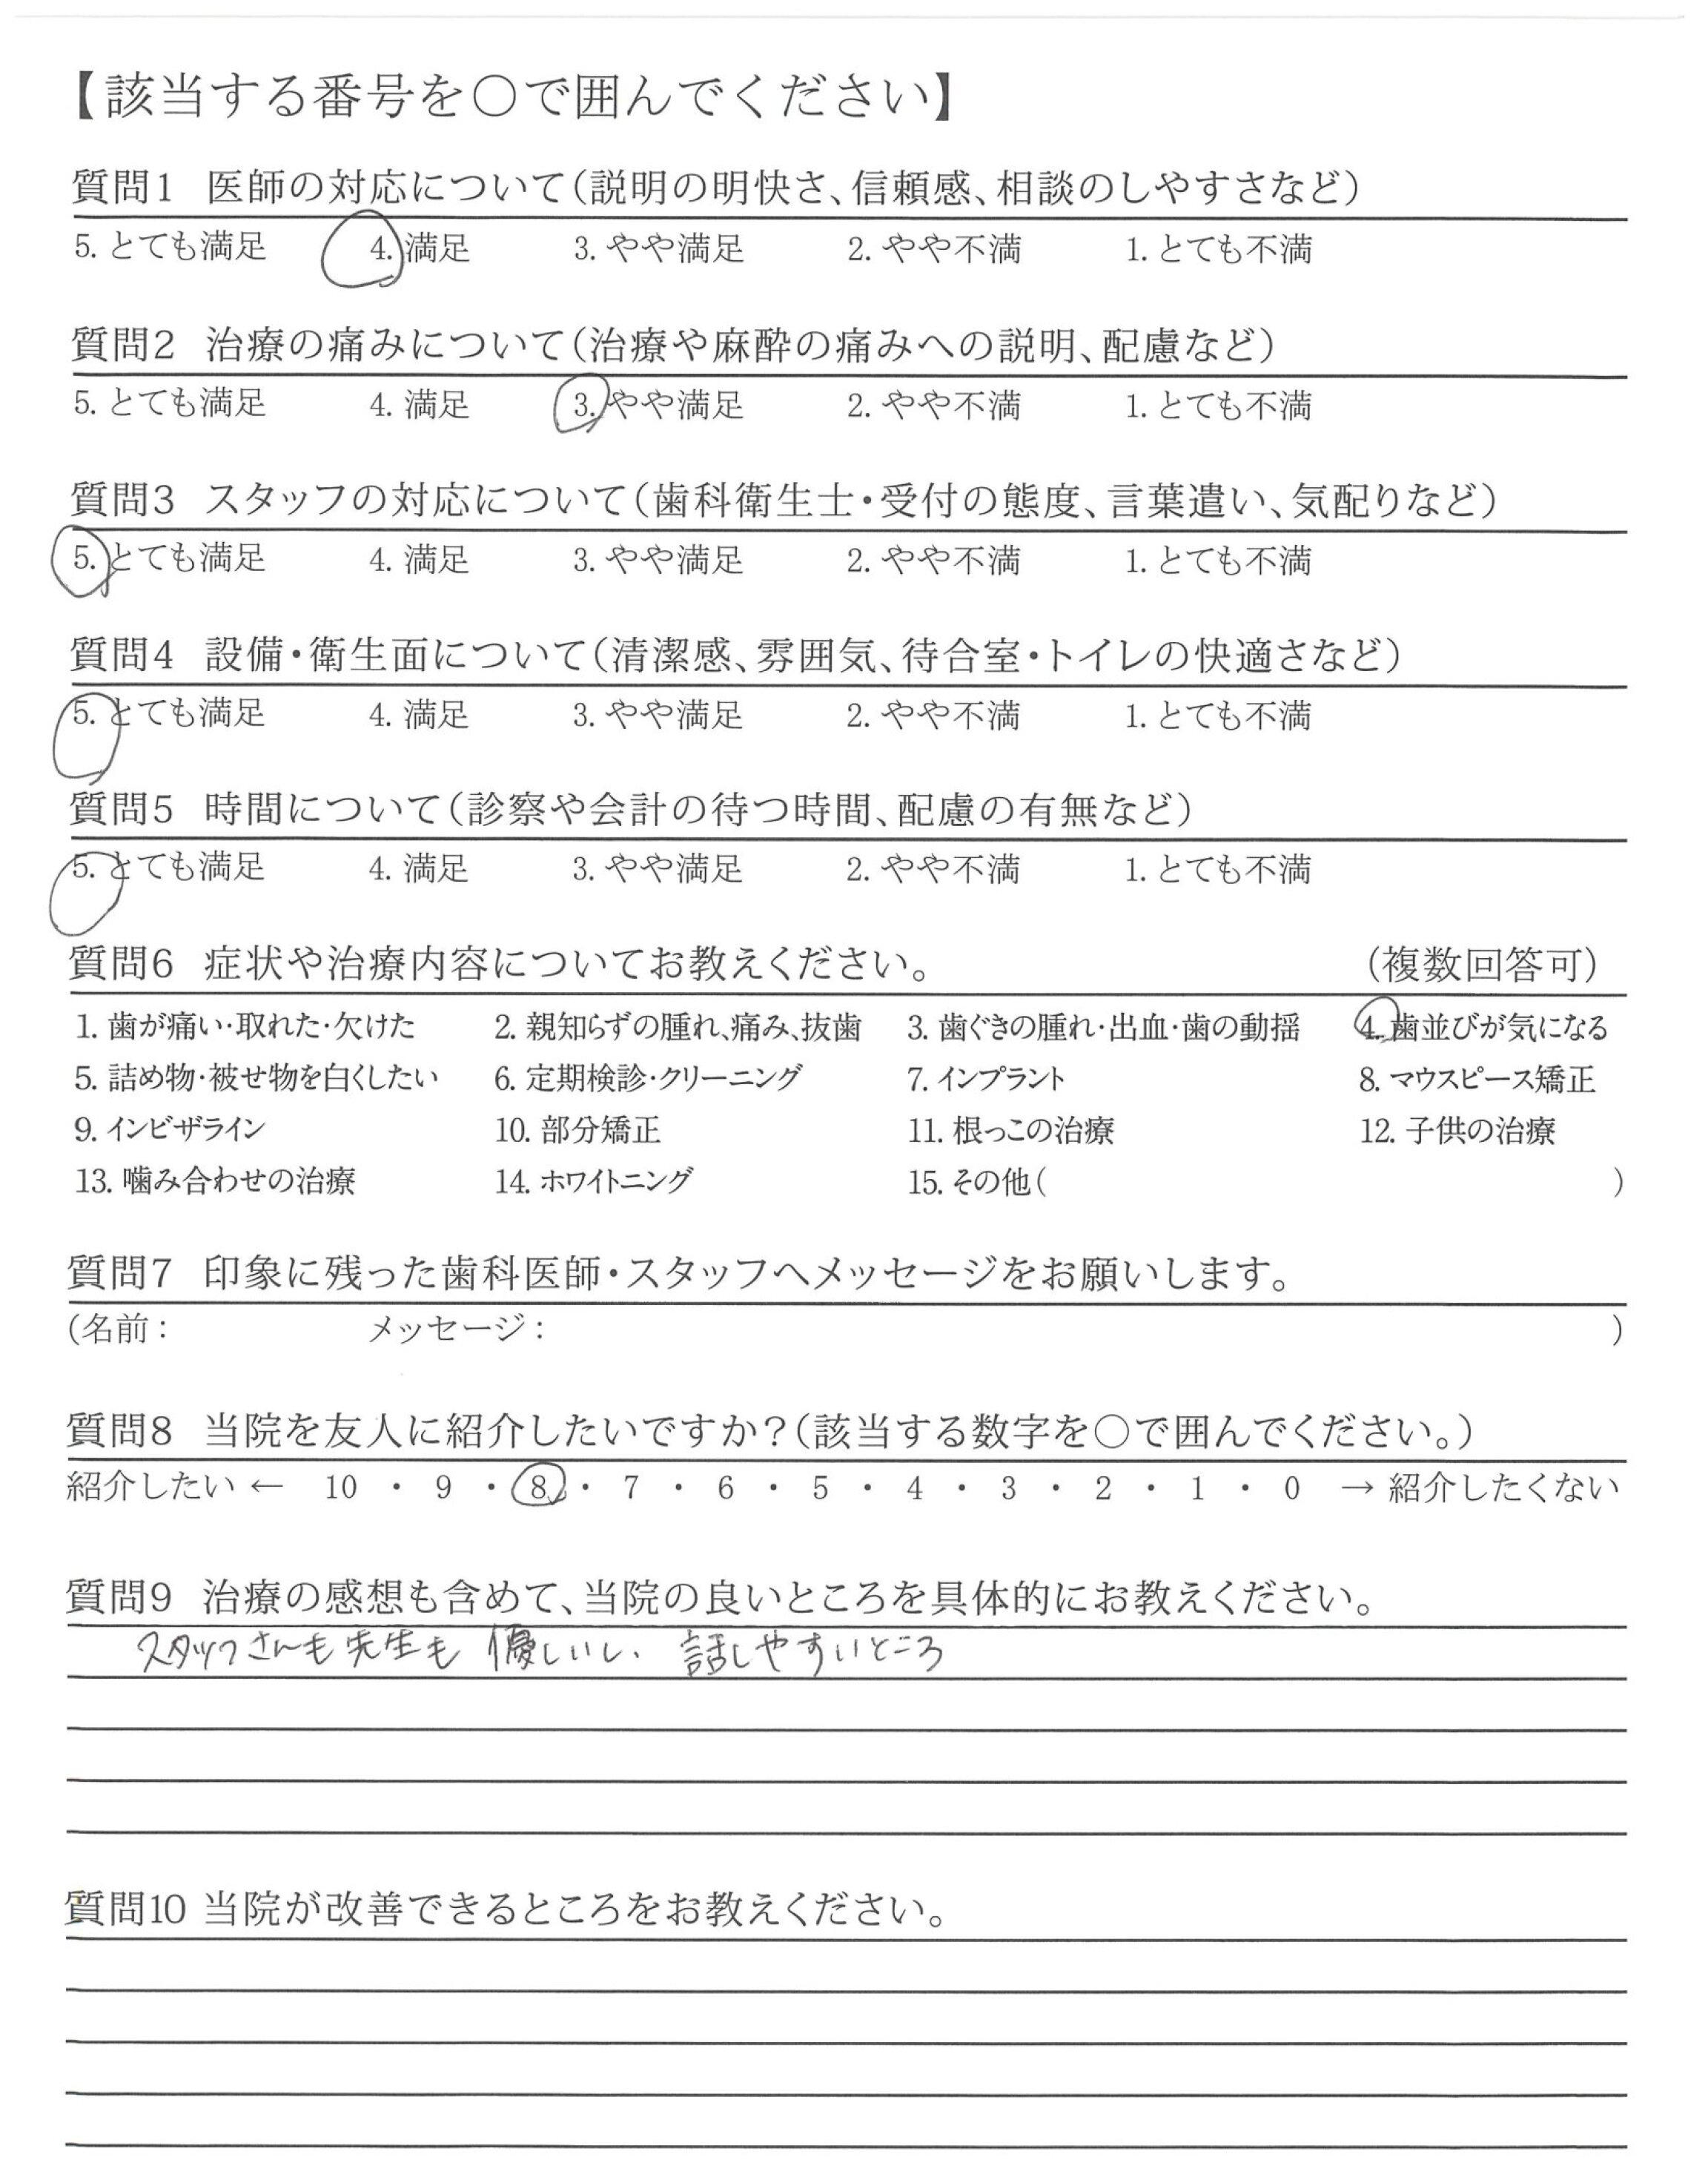 【該当する番号を○で囲んでください】
質問1 医師の対応について(説明の明快さ、信頼感、相談のしやすさなど)
5. とても満足 4. 満足 3. やや満足 2. やや不満 1. とても不満
質問2 治療の痛みについて(治療や麻酔の痛みへの説明、配慮など)
5. とても満足 4. 満足 3. やや満足 2. やや不満 1. とても不満
質問3 スタッフの対応について(歯科衛生士・受付の態度、言葉遣い、気配りなど)
5. とても満足 4. 満足 3. やや満足 2. やや不満 1. とても不満
質問4 設備・衛生面について(清潔感、雰囲気、待合室・トイレの快適さなど)
5. とても満足 4. 満足 3. やや満足 2. やや不満 1. とても不満
質問5 時間について(診察や会計の待つ時間、配慮の有無など)
5. とても満足 4. 満足 3. やや満足 2. やや不満 1. とても不満
質問6 症状や治療内容についてお教えください。 (複数回答可)
1. 歯が痛い・取れた・欠けた 2. 親知らずの腫れ、痛み、抜歯 3. 歯ぐきの腫れ・出血・歯の動揺 4. 歯並びが気になる
5. 詰め物・被せ物を白くしたい 6. 定期検診・クリーニング 7. インプラント 8. マウスピース矯正
9. インビザライン 10. 部分矯正 11. 根っこの治療 12. 子供の治療
13. 噛み合わせの治療 14. ホワイトニング 15. その他( )
質問7 印象に残った歯科医師・スタッフへメッセージをお願いします。
(名前: メッセージ: )
質問8 当院を友人に紹介したいですか?(該当する数字を○で囲んでください。)
紹介したい ← 10 ・ 9 ・ 8 ・ 7 ・ 6 ・ 5 ・ 4 ・ 3 ・ 2 ・ 1 ・ 0 → 紹介したくない
質問9 治療の感想も含めて、当院の良いところを具体的にお教えください。
スタッフさんも先生も 優しいし、 話しやすいところ
質問10 当院が改善できるところをお教えください。